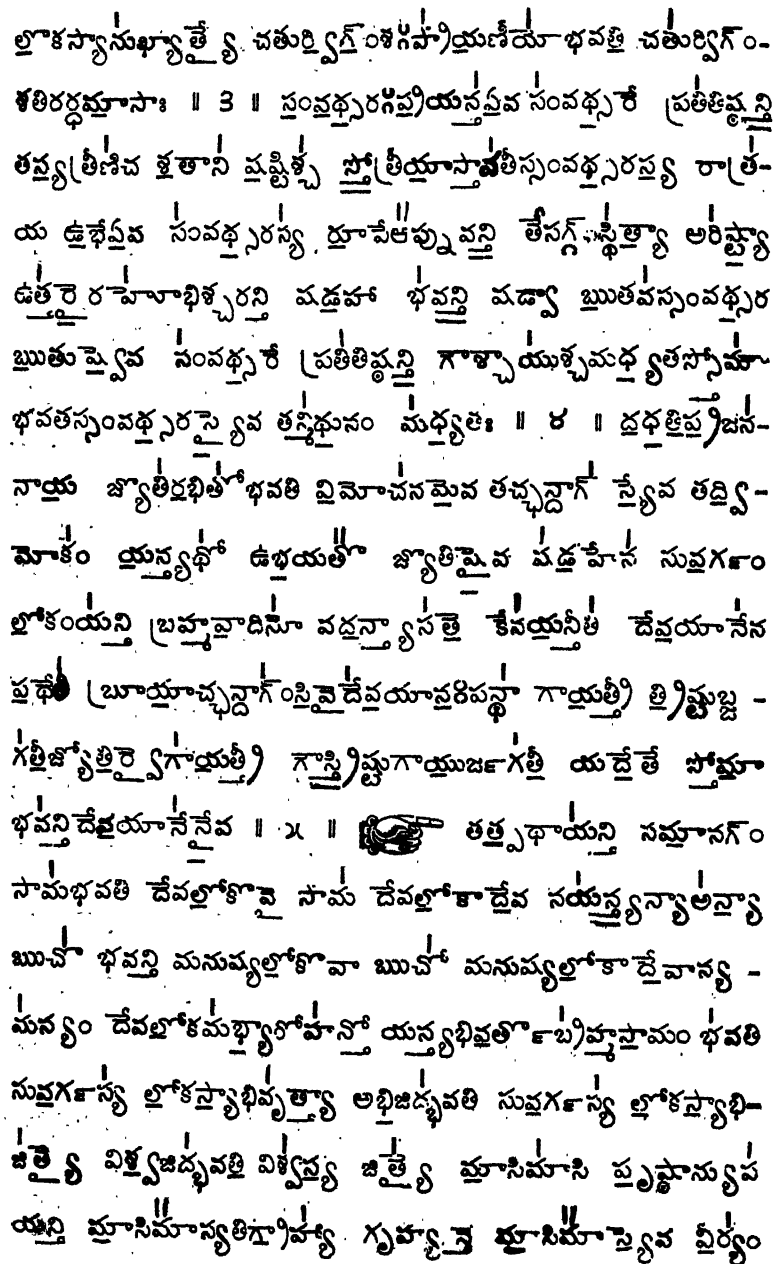 లోకస్యానుఖ్యాత్యై చతుర్విగ్ంశఃప్రాయణీయోభవతి చతుర్విగ్ం-
శతిరర్ధమాసాః ॥ ౩ ॥ సంవథ్సరఃప్రియన్తఏవ సంవథ్సరే ప్రతితిష్ఠన్తి
తస్యత్రీణిచ శతాని షష్టిశ్చ స్తోత్రీయాస్తావతీస్సంవథ్సరస్య రాత్ర-
య ఉభేఏవ సంవథ్సరస్య రూపేఆప్నువన్తి తేసగ్గ్ంస్థిత్యా అరిష్ట్యా
ఉత్తరైరహోభిశ్చరన్తి షడహా భవన్తి షడ్వా ఋతవస్సంవథ్సర
ఋతుష్వేవ సంవథ్సరే ప్రతితిష్ఠన్తి గౌశ్చాయుశ్చమధ్యతస్తోమౌ
భవతస్సంవథ్సరస్యైవ తన్మిథునం మధ్యతః ॥ ౪ ॥ దధతిప్రజన-
నాయ జ్యోతిరభితోభవతి విమోచనమేవ తచ్ఛన్దాగ్ స్యేవ తద్వి-
మోకం యన్త్యథో ఉభయతో జ్యోతిషైవ షడహేన సువర్గం
లోకంయన్తి బ్రహ్మవాదినో వదన్త్యాసతే కేనయన్తీతి దేవయానేన
పథేతి బ్రూయాచ్ఛన్దాగ్ంసివైదేవయానఃపన్థా గాయత్రీ త్రిష్టుబ్జ-
గతీజ్యోతిర్వైగాయత్రీ గౌస్త్రిష్టుగాయుర్జగతీ యదేతే స్తోమా
భవన్తిదేవయానేనైవ ॥ ౫ ॥ తత్పథాయన్తి సమానగ్ం
సామభవతి దేవలోకోవై సామ దేవలోకాదేవ నయన్త్యన్యాఅన్యా
ఋచో భవన్తి మనుష్యలోకోవా ఋచో మనుష్యలోకాదేవాన్య-
మన్యం దేవలోకమభ్యారోహన్తో యన్త్యభివర్తోబ్రహ్మసామం భవతి
సువర్గస్య లోకస్యాభివృత్యా అభిజిద్భవతి సువర్గస్య లోకస్యాభి-
జిత్యై విశ్వజిద్భవతి విశ్వస్య జిత్యై మాసిమాసి పృష్ఠాన్యుప
యన్తి మాసిమాస్యతిగ్రాహ్యా గృహ్యన్తే మాసిమాస్యేవ వీర్యం